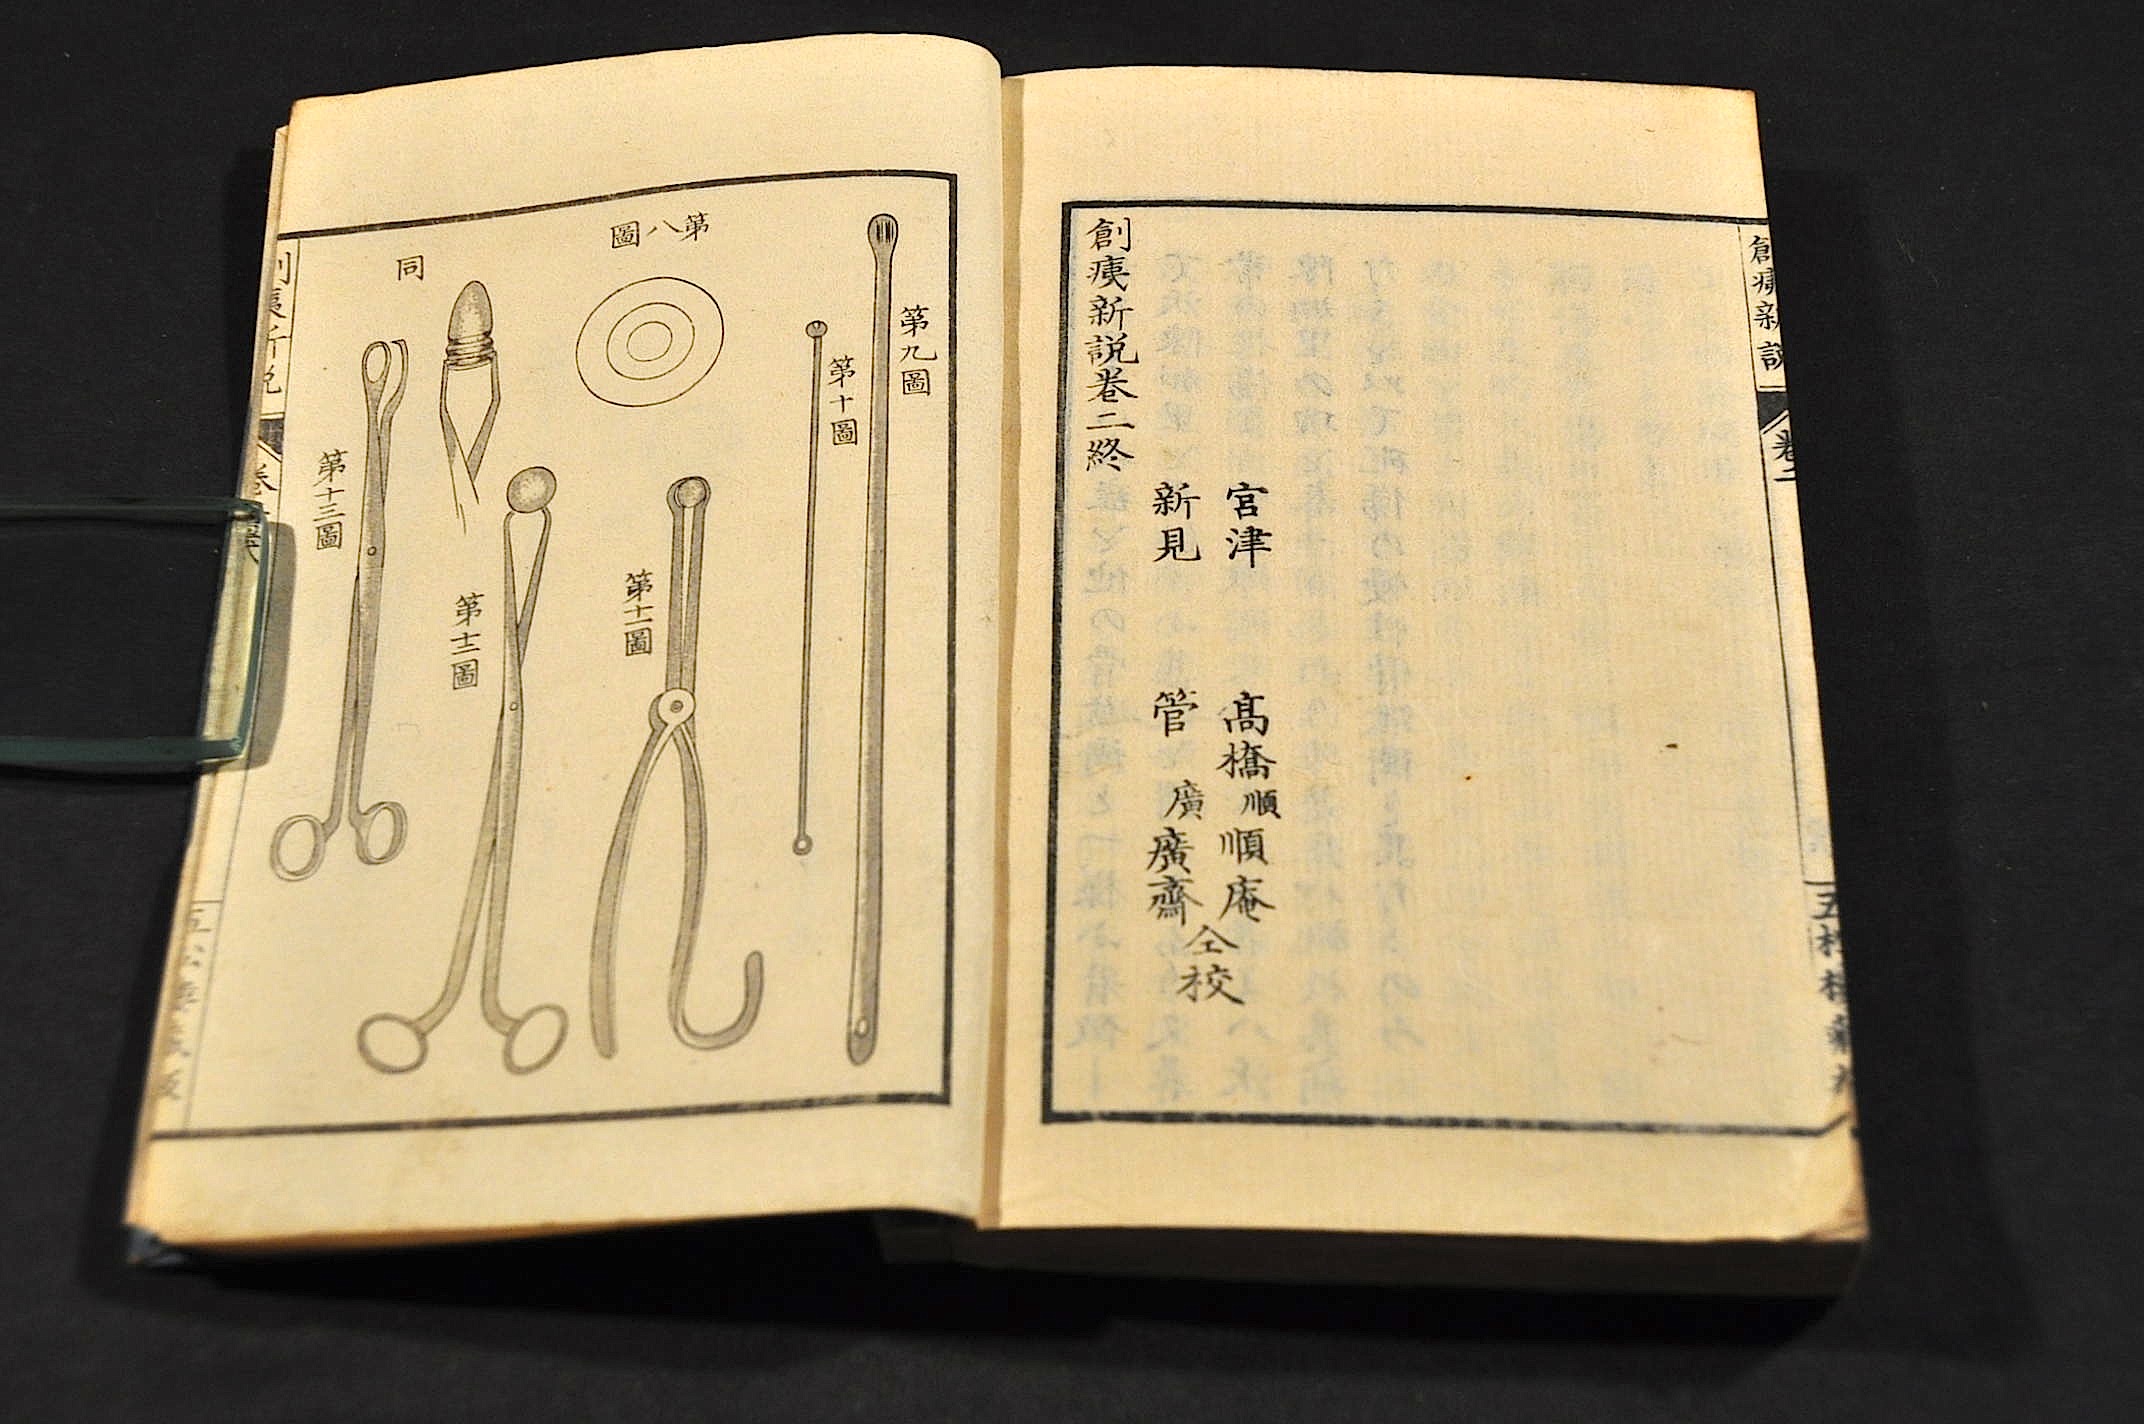 創痍新説
卷二
創痍新説卷二終
宮津 高橋順順庵
新見 管廣廣齋
仝校
第九圖
第十圖
第八圖
第十一圖
同
第十二圖
第十三圖